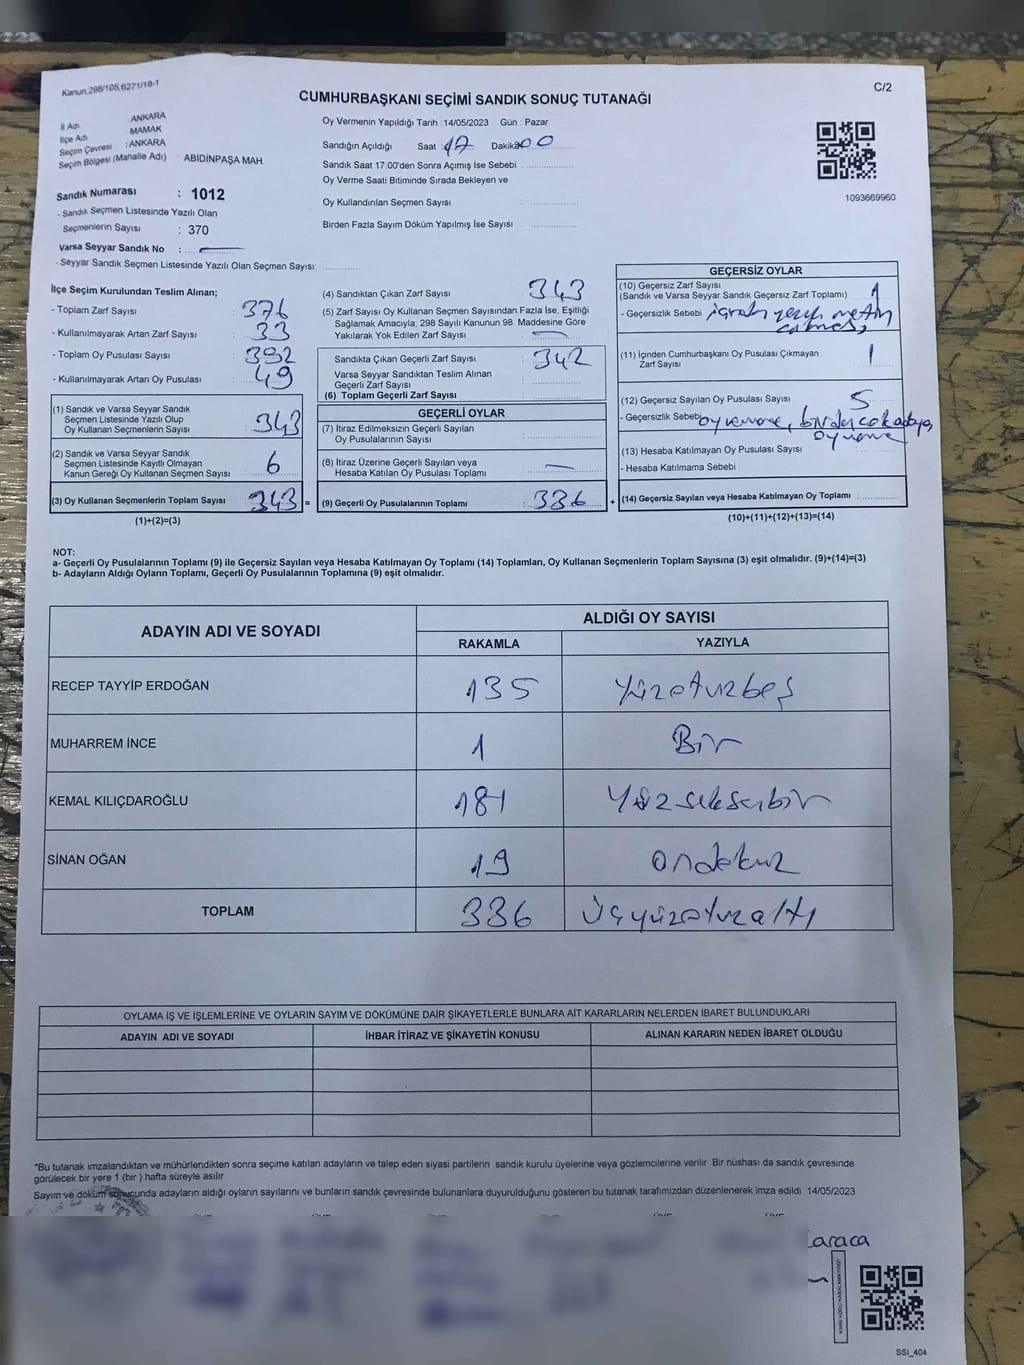 Kanun,298/105,6271/18-1
C/2
CUMHURBAŞKANI SEÇİMİ SANDIK SONUÇ TUTANAĞI
İl Adı : ANKARA
İlçe Adı : MAMAK
Seçim Çevresi : ANKARA
Seçim Bölgesi (Mahalle Adı) : ABİDİNPAŞA MAH.
Sandık Numarası : 1012
- Sandık Seçmen Listesinde Yazılı Olan
Seçmenlerin Sayısı : 370
Varsa Seyyar Sandık No :
- Seyyar Sandık Seçmen Listesinde Yazılı Olan Seçmen Sayısı:
Oy Vermenin Yapıldığı Tarih :14/05/2023 Gün : Pazar
Sandığın Açıldığı Saat 17 Dakika 00
Sandık Saat 17.00'den Sonra Açımış İse Sebebi :
Oy Verme Saati Bitiminde Sırada Bekleyen ve
Oy Kullandırılan Seçmen Sayısı :
Birden Fazla Sayım Döküm Yapılmış İse Sayısı :
1093669960
İlçe Seçim Kurulundan Teslim Alınan;
- Toplam Zarf Sayısı : 376
- Kullanılmayarak Artan Zarf Sayısı : 33
- Toplam Oy Pusulası Sayısı : 392
- Kullanılmayarak Artan Oy Pusulası : 49
(1) Sandık ve Varsa Seyyar Sandık
Seçmen Listesinde Yazılı Olup
Oy Kullanan Seçmenlerin Sayısı : 343
(2) Sandık ve Varsa Seyyar Sandık
Seçmen Listesinde Kayıtlı Olmayan
Kanun Gereği Oy Kullanan Seçmen Sayısı : 6
(3) Oy Kullanan Seçmenlerin Toplam Sayısı : 343 =
(1)+(2)=(3)
(4) Sandıktan Çıkan Zarf Sayısı : 343
(5) Zarf Sayısı Oy Kullanan Seçmen Sayısından Fazla İse, Eşitliği
Sağlamak Amacıyla; 298 Sayılı Kanunun 98. Maddesine Göre
Yakılarak Yok Edilen Zarf Sayısı :
Sandıkta Çıkan Geçerli Zarf Sayısı : 342
Varsa Seyyar Sandıktan Teslim Alınan
Geçerli Zarf Sayısı :
(6) Toplam Geçerli Zarf Sayısı :
GEÇERLİ OYLAR
(7) İtiraz Edilmeksizin Geçerli Sayılan
Oy Pusulalarının Sayısı :
(8) İtiraz Üzerine Geçerli Sayılan veya
Hesaba Katılan Oy Pusulası Toplamı :
(9) Geçerli Oy Pusulalarının Toplamı : 336 +
GEÇERSİZ OYLAR
(10) Geçersiz Zarf Sayısı
(Sandık ve Varsa Seyyar Sandık Geçersiz Zarf Toplamı) : 1
- Geçersizlik Sebebi :
(11) İçinden Cumhurbaşkanı Oy Pusulası Çıkmayan
Zarf Sayısı : 1
(12) Geçersiz Sayılan Oy Pusulası Sayısı : 5
- Geçersizlik Sebebi : oy vermeme, birden çok adaya,
oy verme
(13) Hesaba Katılmayan Oy Pusulası Sayısı :
- Hesaba Katılmama Sebebi :
(14) Geçersiz Sayılan veya Hesaba Katılmayan Oy Toplamı :
(10)+(11)+(12)+(13)=(14)
NOT:
a- Geçerli Oy Pusulalarının Toplamı (9) ile Geçersiz Sayılan veya Hesaba Katılmayan Oy Toplamı (14) Toplamları, Oy Kullanan Seçmenlerin Toplam Sayısına (3) eşit olmalıdır. (9)+(14)=(3)
b- Adayların Aldığı Oyların Toplamı, Geçerli Oy Pusulalarının Toplamına (9) eşit olmalıdır.
ADAYIN ADI VE SOYADI
ALDIĞI OY SAYISI
RAKAMLA YAZIYLA
RECEP TAYYİP ERDOĞAN 135 Yüzotuzbeş
MUHARREM İNCE 1 Bir
KEMAL KILIÇDAROĞLU 181 Yüzseksenbir
SİNAN OĞAN 19 Ondokuz
TOPLAM 336 Üçyüzotuzaltı
OYLAMA İŞ VE İŞLEMLERİNE VE OYLARIN SAYIM VE DÖKÜMÜNE DAİR ŞİKAYETLERLE BUNLARA AİT KARARLARIN NELERDEN İBARET BULUNDUKLARI
ADAYIN ADI VE SOYADI İHBAR İTİRAZ VE ŞİKAYETİN KONUSU ALINAN KARARIN NEDEN İBARET OLDUĞU
*Bu tutanak imzalandıktan ve mühürlendikten sonra seçime katılan adayların ve talep eden siyasi partilerin sandık kurulu üyelerine veya gözlemcilerine verilir. Bir nüshası da sandık çevresinde
görülecek bir yere 1 (bir ) hafta süreyle asılır.
Sayım ve döküm sonucunda adayların aldığı oyların sayılarını ve bunların sandık çevresinde bulunanlara duyurulduğunu gösteren bu tutanak tarafımızdan düzenlenerek imza edildi. 14/05/2023
Karaca
SSİ_404